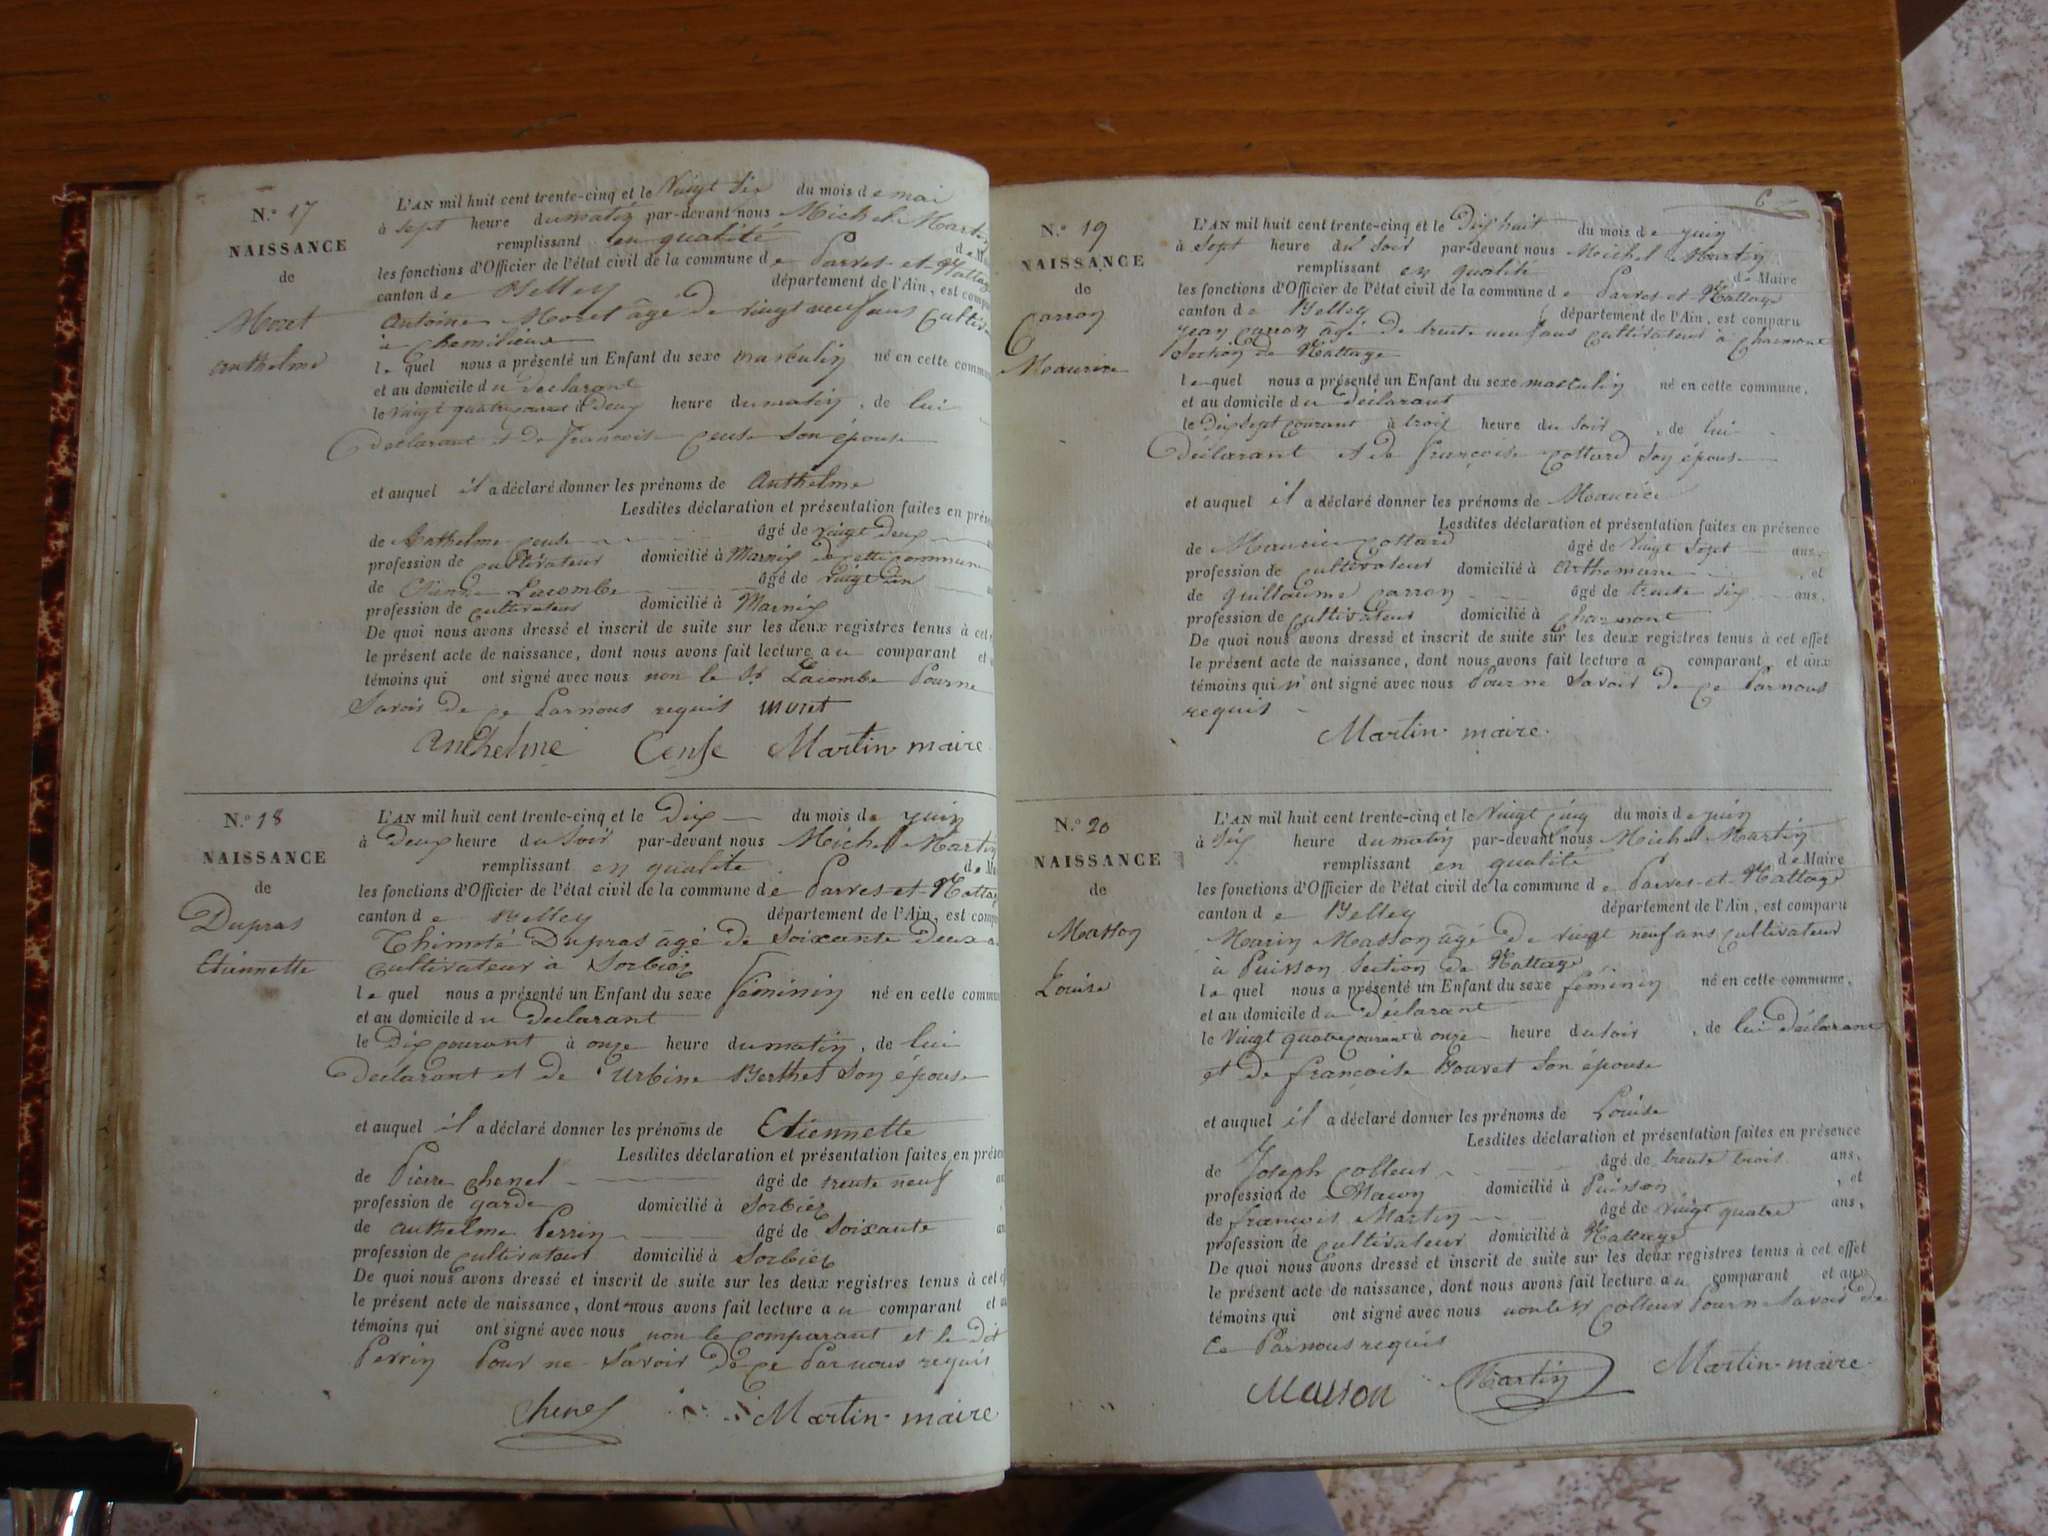 N.º 17
NAISSANCE
de
Moret
Anthelme
L'AN mil huit cent trente-cinq et le vingt six du mois de mai
à sept heure du matin par-devant nous Michel Martin
remplissant en qualité de M
les fonctions d'Officier de l'état civil de la commune de Parves et Nattag
canton de Belley département de l'Ain, est compa
Antoine Moret âgé de vingt neuf ans cultiv
à Chemilieux
le quel nous a présenté un Enfant du sexe masculin né en cette comm
et au domicile du déclarant
le vingt quatre courant à deux heure du matin, de lui
déclarant et de françoise Cense son épouse
et auquel il a déclaré donner les prénoms de Anthelme
Lesdites déclaration et présentation faites en prése
de Anthelme Cense âgé de vingt deux
profession de cultivateur domicilié à Marnix de cette commune
de Lacombe âgé de vingt
profession de cultivateur domicilié à Marnix
De quoi nous avons dressé et inscrit de suite sur les deux registres tenus à cet
le présent acte de naissance, dont nous avons fait lecture au comparant et
témoins qui ont signé avec nous non le Sr Lacombe Pour ne
Savoir de ce Par nous requis moret
Anthelme Cense Martin maire
N.º 18
NAISSANCE
de
Dupras
Etiennette
L'AN mil huit cent trente-cinq et le Dix du mois de juin
à Deux heure du Soir par-devant nous Michel Martin
remplissant en qualité de M
les fonctions d'Officier de l'état civil de la commune de Parves et Nattag
canton de Belley département de l'Ain, est comp
Thimoté Dupras âgé de soixante deux a
cultivateur à Sorbier
le quel nous a présenté un Enfant du sexe féminin né en cette commu
et au domicile du déclarant
le Dix courant à onze heure du matin, de lui
déclarant et de Urbine Berthet son épouse
et auquel il a déclaré donner les prénoms de Etiennette
Lesdites déclaration et présentation faites en prése
de Pierre Chenel âgé de trente neuf
profession de garde domicilié à Sorbier
de anthelme Perrin âgé de soixante
profession de cultivateur domicilié à Sorbier
De quoi nous avons dressé et inscrit de suite sur les deux registres tenus à cet
le présent acte de naissance, dont nous avons fait lecture au comparant et
témoins qui ont signé avec nous non le comparant et le dit
Perrin Pour ne Savoir de ce Par nous requis
Chenel Martin maire
6
N.º 19
NAISSANCE
de
Carron
Maurice
L'AN mil huit cent trente-cinq et le Dix huit du mois de juin
à sept heure du soir par-devant nous Michel Martin
remplissant en qualité de Maire
les fonctions d'Officier de l'état civil de la commune de Parves et Nattage
canton de Belley département de l'Ain, est comparu
jean Carron âgé de trente neuf ans cultivateur à Charmont
Section de Nattage
le quel nous a présenté un Enfant du sexe masculin né en cette commune,
et au domicile du déclarant
le Dix sept courant à trois heure du soir, de lui
déclarant et de françoise Cottard son épouse
et auquel il a déclaré donner les prénoms de Maurice
Lesdites déclaration et présentation faites en présence
de Maurice Cottard âgé de vingt sept ans,
profession de cultivateur domicilié à Arthemare, et
de guillaume Carron âgé de trente six ans,
profession de cultivateur domicilié à Charmont
De quoi nous avons dressé et inscrit de suite sur les deux registres tenus à cet effet
le présent acte de naissance, dont nous avons fait lecture a comparant et aux
témoins qui n'ont signé avec nous Pour ne Savoir de ce Par nous
requis
Martin maire.
N.º 20
NAISSANCE
de
Masson
Louise
L'AN mil huit cent trente-cinq et le vingt cinq du mois de juin
à six heure du matin par-devant nous Michel Martin
remplissant en qualité de Maire
les fonctions d'Officier de l'état civil de la commune de Parves et Nattage
canton de Belley département de l'Ain, est comparu
Marin Masson âgé de vingt neuf ans cultivateur
à Puisson Section de Nattage
le quel nous a présenté un Enfant du sexe féminin né en cette commune,
et au domicile du déclarant
le vingt quatre courant à onze heure du soir, de lui déclarant
et de françoise Bouvet son épouse
et auquel il a déclaré donner les prénoms de Louise
Lesdites déclaration et présentation faites en présence
de Joseph Colleur âgé de trente trois ans,
profession de domicilié à Puisson, et
de francois Martin âgé de vingt quatre ans,
profession de cultivateur domicilié à Nattage
De quoi nous avons dressé et inscrit de suite sur les deux registres tenus à cet effet
le présent acte de naissance, dont nous avons fait lecture au comparant et aux
témoins qui ont signé avec nous non le Sr Colleur Pour ne Savoir de
Ce Par nous requis
Masson Martin Martin maire